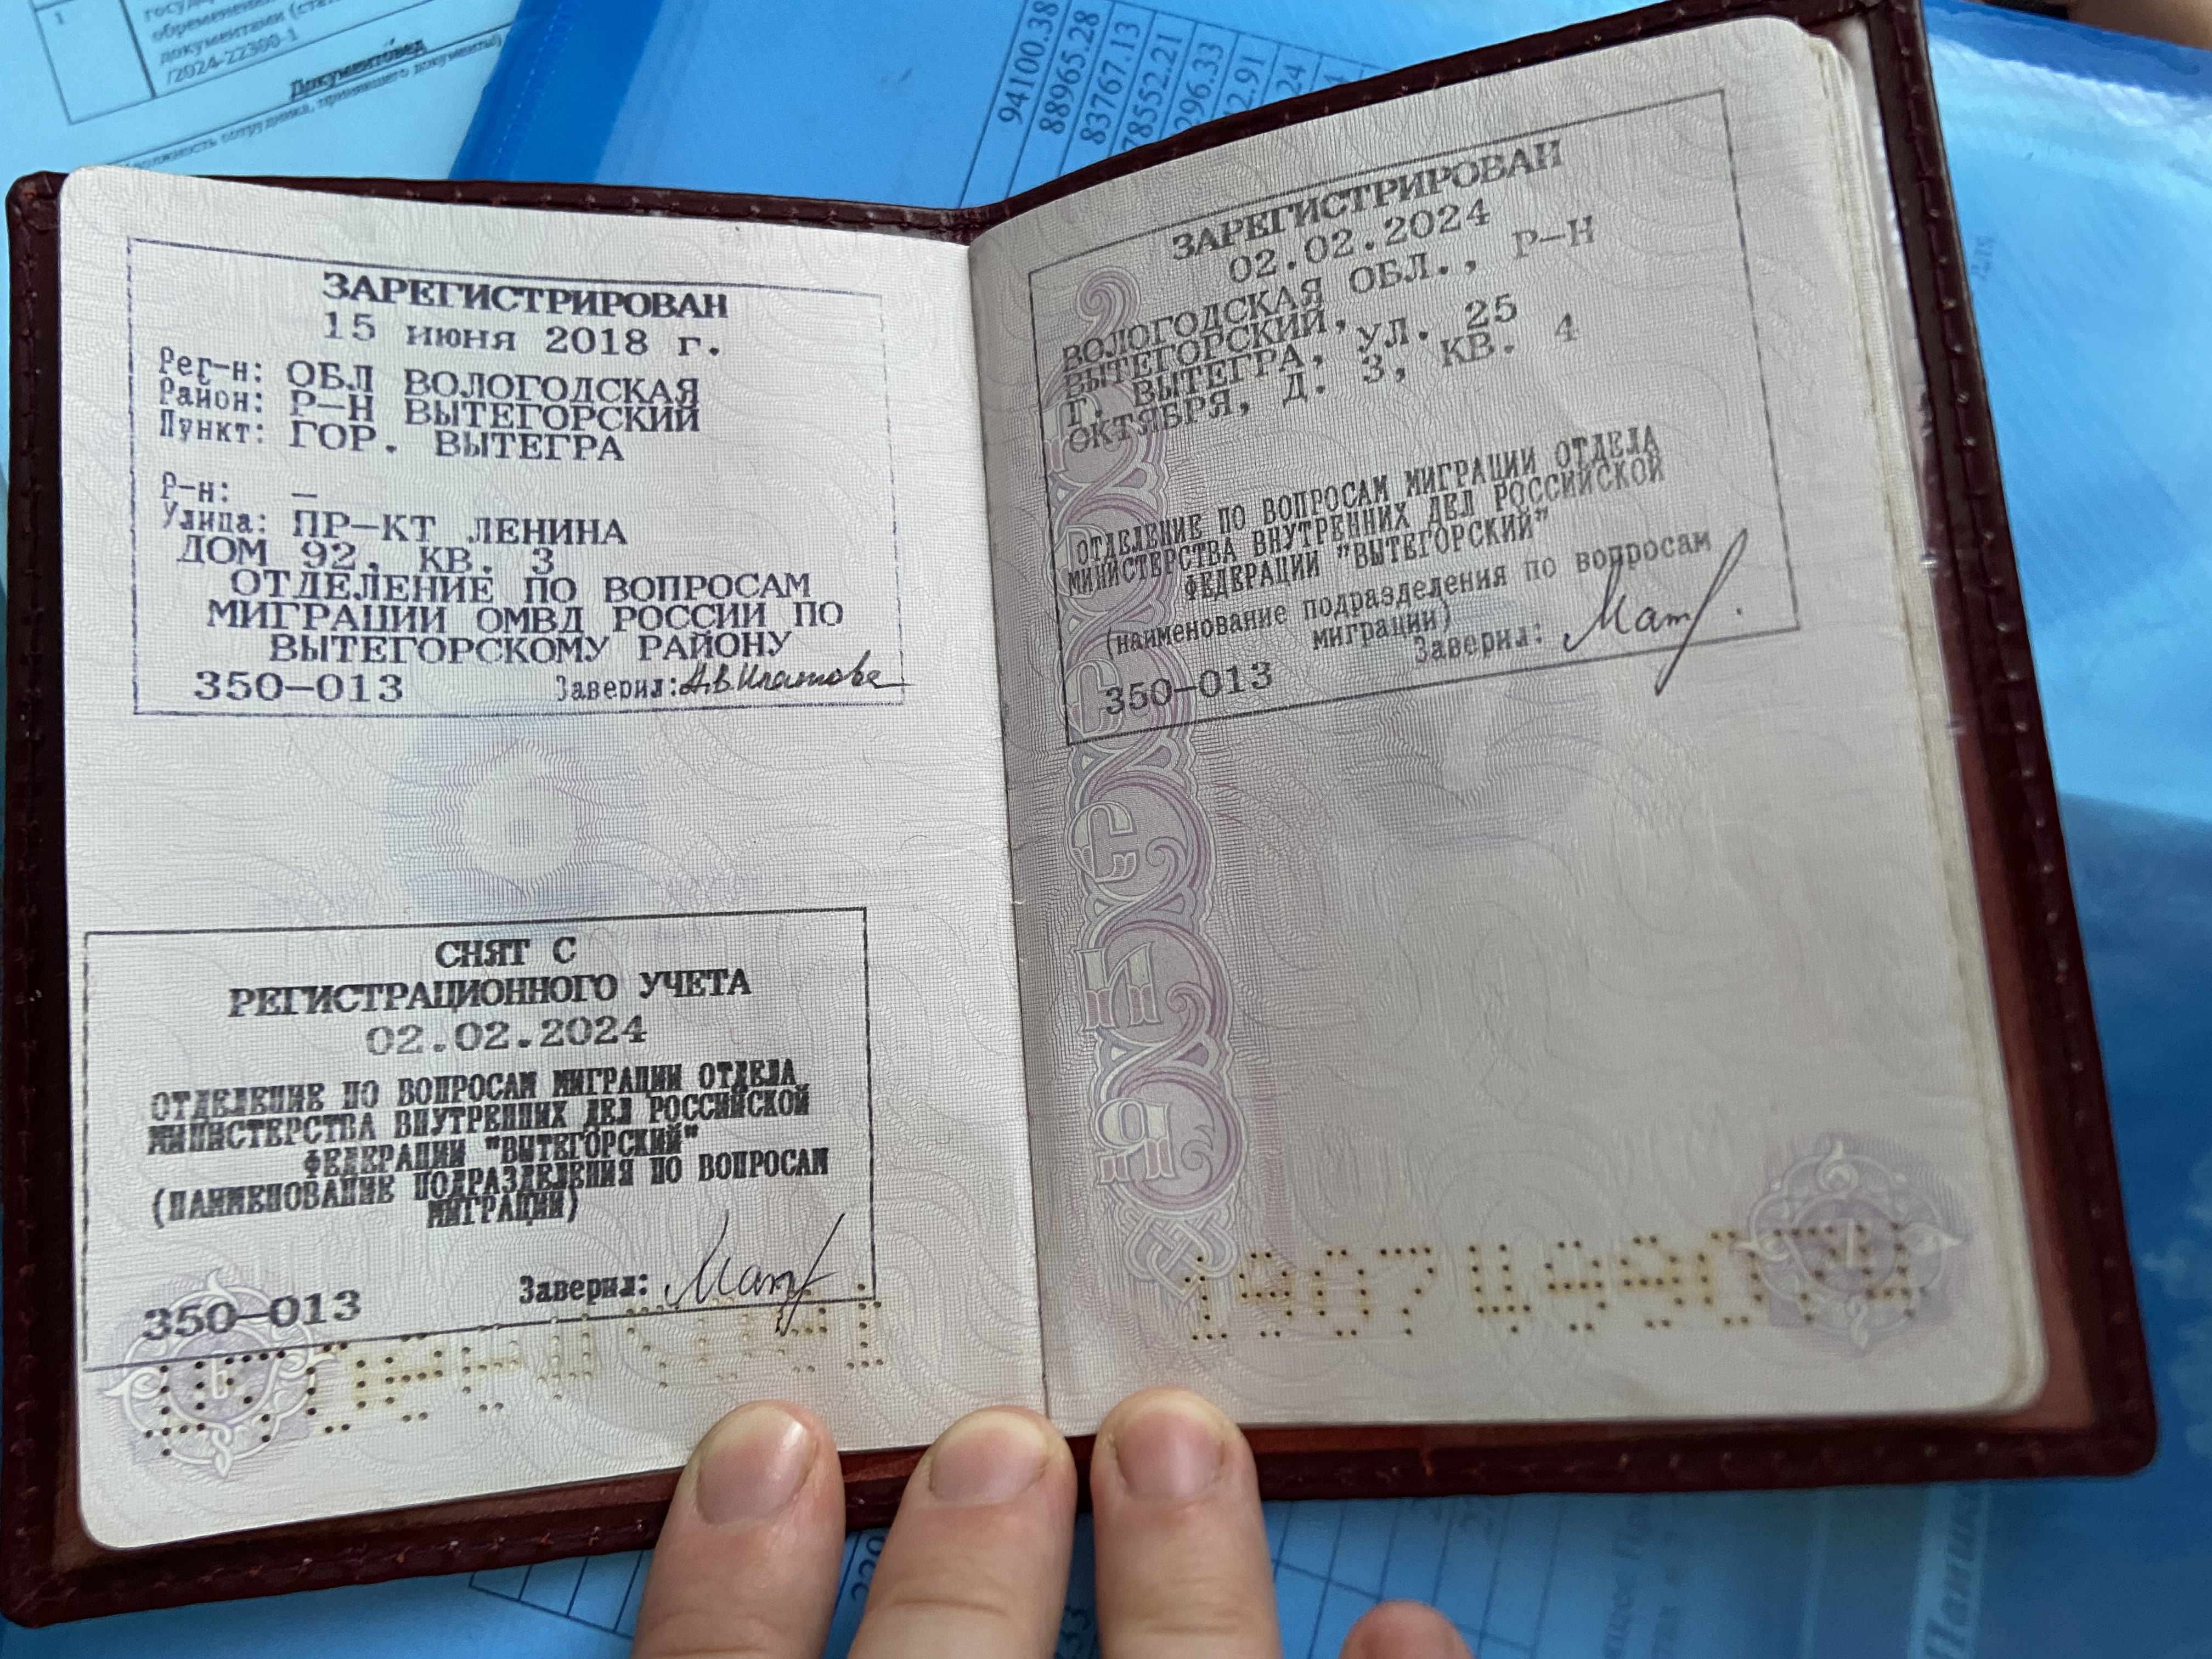 1
обременени
документами (ста
документами
/2024-22300-1
Документовед
должность сотрудника, принявшего документы)
94100.38
88965.28
83767.13
78552.21
296.33
2.91
24
ЗАРЕГИСТРИРОВАН
15 июня 2018 г.
Рег-н: ОБЛ ВОЛОГОДСКАЯ
Район: Р-Н ВЫТЕГОРСКИЙ
Пункт: ГОР. ВЫТЕГРА
Р-н: –
Улица: ПР-КТ ЛЕНИНА
ДОМ 92, КВ. 3
ОТДЕЛЕНИЕ ПО ВОПРОСАМ
МИГРАЦИИ ОМВД РОССИИ ПО
ВЫТЕГОРСКОМУ РАЙОНУ
350-013 Заверил:
СНЯТ С
РЕГИСТРАЦИОННОГО УЧЕТА
02.02.2024
ОТДЕЛЕНИЕ ПО ВОПРОСАМ МИГРАЦИИ ОТДЕЛА
МИНИСТЕРСТВА ВНУТРЕННИХ ДЕЛ РОССИЙСКОЙ
ФЕДЕРАЦИИ "ВЫТЕГОРСКИЙ"
(НАИМЕНОВАНИЕ ПОДРАЗДЕЛЕНИЯ ПО ВОПРОСАМ
МИГРАЦИИ)
350-013 Заверил:
ЗАРЕГИСТРИРОВАН
02.02.2024
ВОЛОГОДСКАЯ ОБЛ., Р-Н
ВЫТЕГОРСКИЙ,
Г. ВЫТЕГРА, УЛ. 25
ОКТЯБРЯ, Д. 3, КВ. 4
ОТДЕЛЕНИЕ ПО ВОПРОСАМ МИГРАЦИИ ОТДЕЛА
МИНИСТЕРСТВА ВНУТРЕННИХ ДЕЛ РОССИЙСКОЙ
ФЕДЕРАЦИИ "ВЫТЕГОРСКИЙ"
(наименование подразделения по вопросам
миграции)
350-013 Заверил: